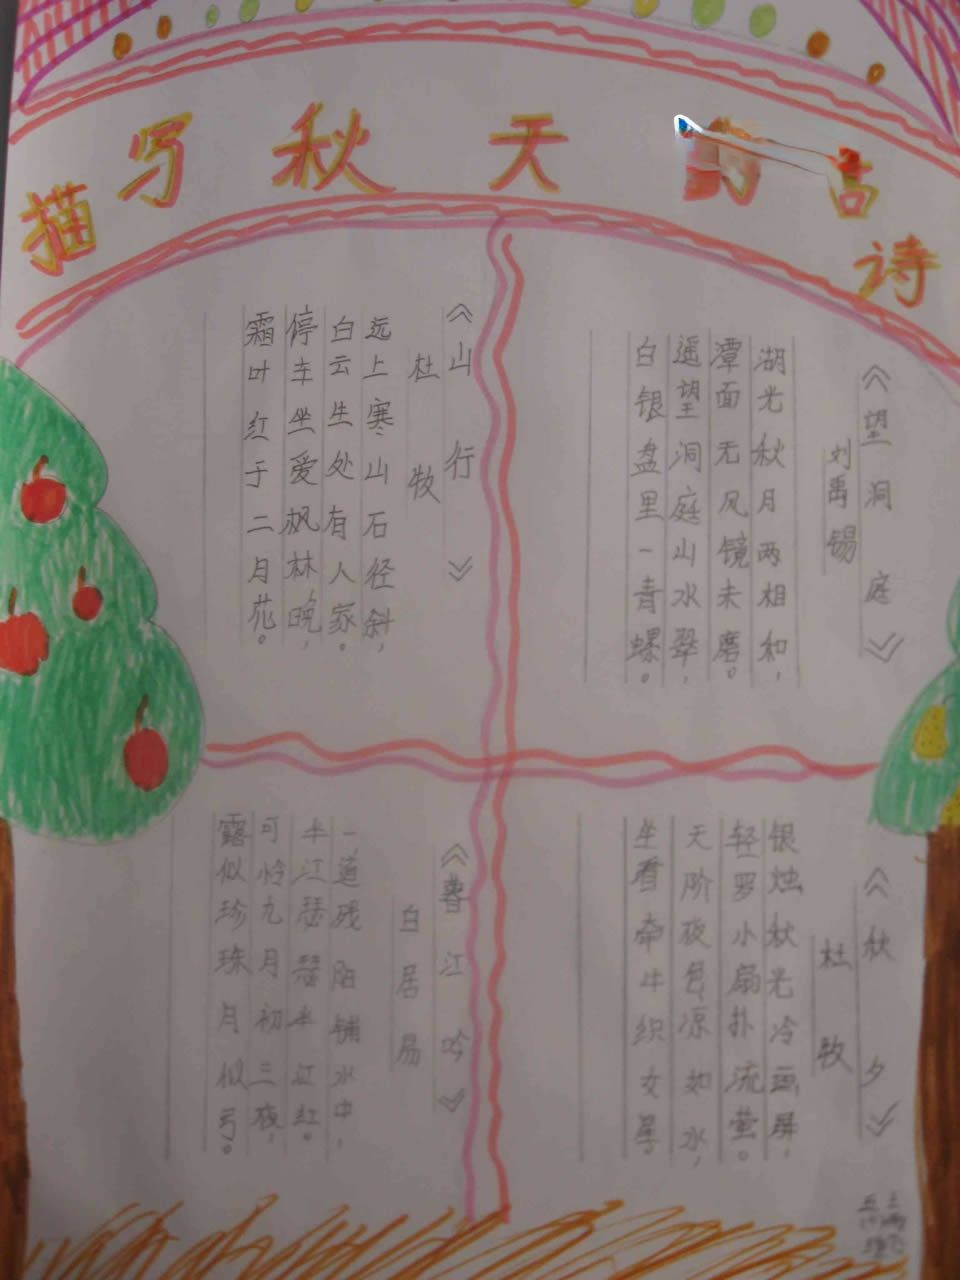 描写秋天的古诗
《望洞庭》
刘禹锡
湖光秋月两相和，
潭面无风镜未磨。
遥望洞庭山水翠，
白银盘里一青螺。
《山行》
杜牧
远上寒山石径斜，
白云生处有人家。
停车坐爱枫林晚，
霜叶红于二月花。
《秋夕》
杜牧
银烛秋光冷画屏，
轻罗小扇扑流萤。
天阶夜色凉如水，
坐看牵牛织女星。
《暮江吟》
白居易
一道残阳铺水中，
半江瑟瑟半江红。
可怜九月初三夜，
露似珍珠月似弓。